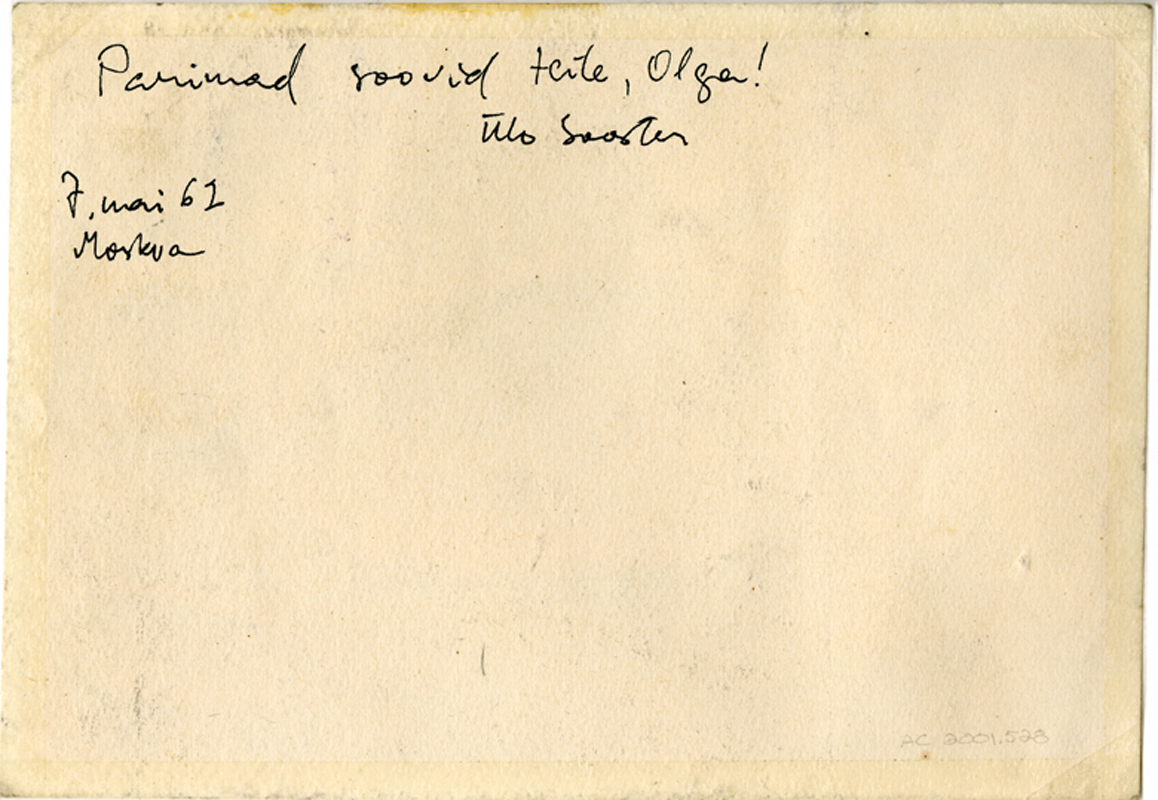 Parimad soovid teile, Olga!
Ülo Sooster
7. mai 61
Moskva
AC 2001.528